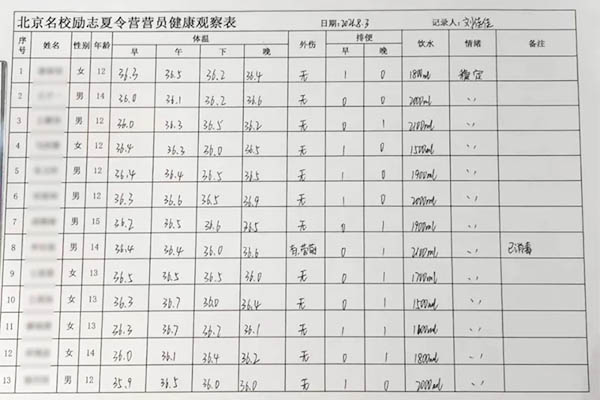 北京名校励志夏令营营员健康观察表 日期:2024.8.3 记录人:
序号 姓名 性别 年龄 体温 外伤 排便 饮水 情绪 备注
早 午 下 晚 早 晚
1 女 12 36.3 36.5 36.2 36.4 无 1 0 1800ml 稳定
2 男 14 36.0 36.1 36.2 36.6 无 0 0 2000ml 〃
3 男 12 36.0 36.3 36.5 36.2 无 1 1 2100ml 〃
4 女 12 36.4 36.3 36.0 36.5 无 1 0 1500ml 〃
5 男 12 36.4 36.4 36.5 36.5 无 1 0 1900ml 〃
6 男 12 36.3 36.6 36.5 36.9 无 1 0 2000ml 〃
7 男 15 36.2 36.5 36.6 36.5 无 0 1 1900ml 〃
8 男 14 36.4 36.4 36.0 36.6 0 1 2100ml 〃 已消毒
9 女 13 36.5 36.5 36.5 36.0 无 0 1 1700ml 〃
10 男 13 36.3 36.7 36.0 36.4 无 0 1 1500ml 〃
11 女 13 36.3 36.7 36.2 36.1 无 1 1 〃
12 女 14 36.0 36.1 36.4 36.2 无 0 1 1800ml 〃
13 男 12 35.9 36.5 36.0 36.0 无 1 0 2000ml 〃